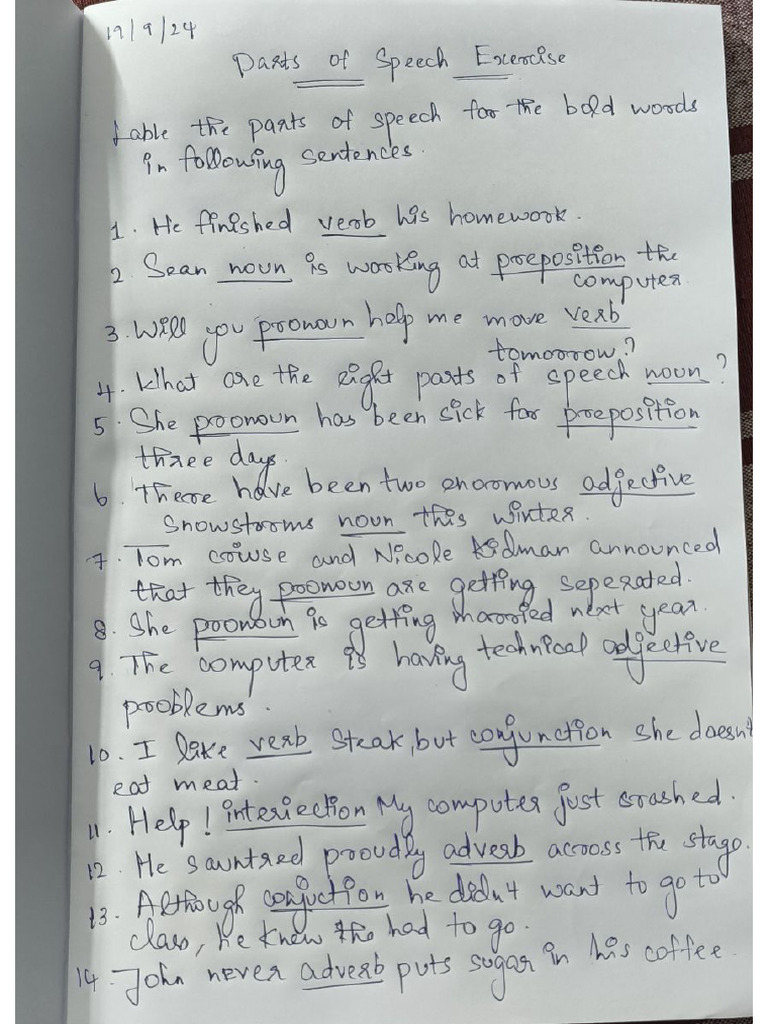 19/9/24
Parts of Speech Exercise
Lable the parts of speech for the bold words
in following sentences.
1. He finished verb his homework.
2. Sean noun is working at preposition the
computer.
3. Will you pronoun help me move verb
tomorrow?
4. What are the right parts of speech noun?
5. She pronoun has been sick for preposition
three days.
6. There have been two enoromous adjective
snowstorms noun this winter.
7. Tom cowse and Nicole Kidman announced
that they pronoun are getting seperated.
8. She pronoun is getting married next year.
9. The computer is having technical adjective
problems.
10. I like verb steak, but conjunction she doesn't
eat meat.
11. Help! interiection My computer just crashed.
12. He sauntred proudly adverb across the stage.
13. Although conjuction he didn't want to go to
class, he knew the had to go.
14. John never adverb puts sugar in his coffee.